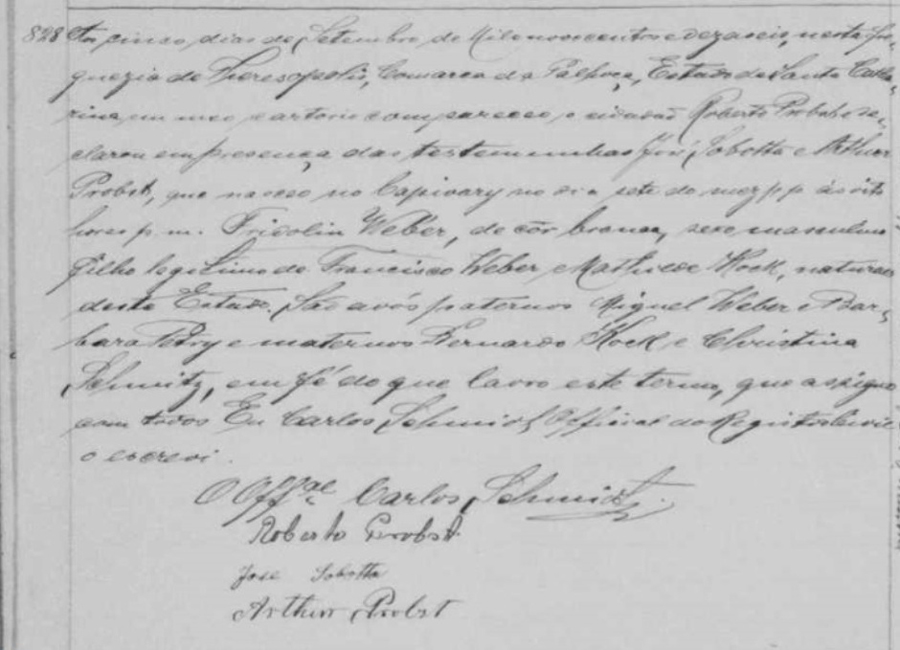 828 Aos cinco dias de Setembro de Mil e novecentos e dezaseis, nesta fre-
guezia de Theresopolis, Comarca da Palhoça, Estado de Santa Catha-
rina em meu cartorio compareceo o cidadão Roberto Probst e de-
clarou em presença das testemunhas José Sobotta e Arthur
Probst, que nasceo no Capivary no dia sete do mez p.p. ás oito
horas p. m. Fridolin Weber, de côr branca, sexo masculino
filho legitimo de Francisco Weber e Mathilde Kock, naturaes
deste Estado. São avós paternos Miguel Weber e Bar-
bara Petry e maternos Bernardo Kock e Christina
Schmitz, em fé do que lavro este termo, que assigno
com todos Eu Carlos Schmidt Official do Registo Civil
o escrevi.
O Offal Carlos Schmidt
Roberto Probst
José Sobotta
Arthur Probst